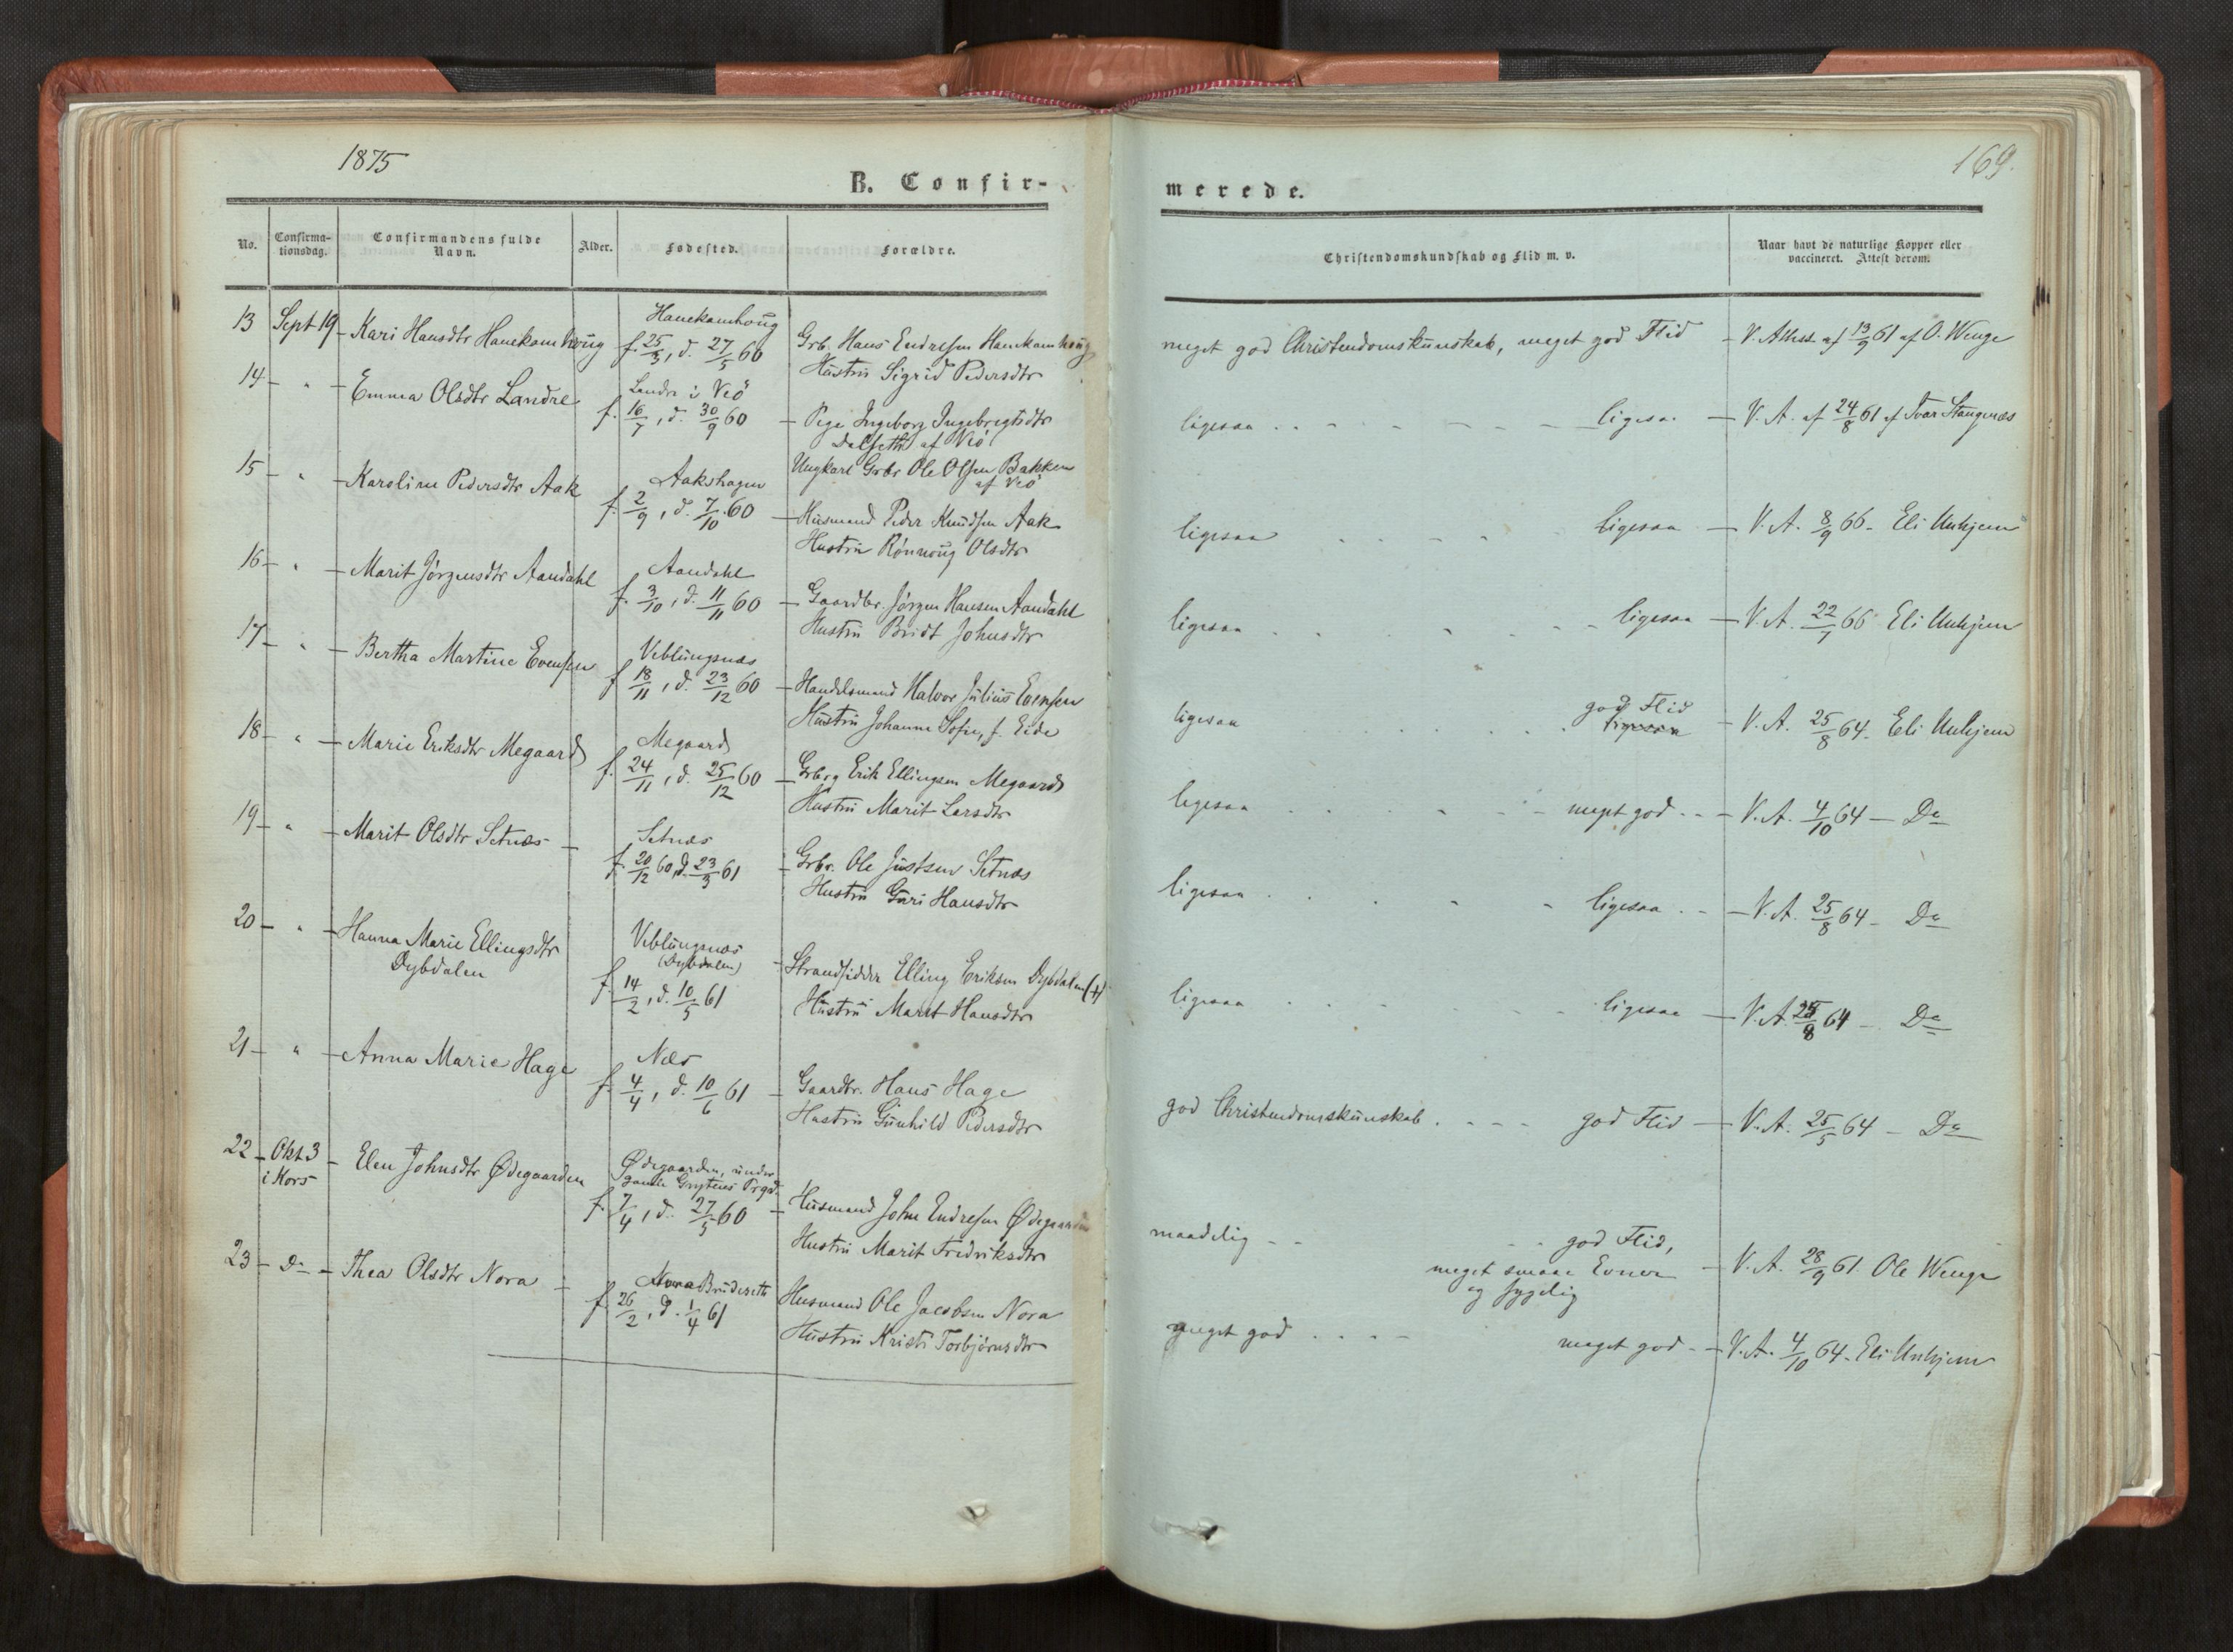 1875
169.
B. Confir-
merede.
No.
Confirma-
tionsdag.
Confirmandens fulde
Navn.
Alder.
Fødested.
Forældre.
Christendomskundskab og Flid m. v.
Naar havt de naturlige Kopper eller
vaccineret. Attest derom.
13 Sept 19 - Kari Hansdtr Hanekamhoug
Hanekamhoug
f. 25/3, d. 27/5 60
Grb. Hans Endresen Hanekamhoug
Hustru Sigrid Pedersdtr
meget god Christendomskunskab, meget god Flid - V. Attest af 13/9 61 af O. Wenge
14 - " - Emma Olsdtr Landre
Landre i Veö
f. 16/7, d. 30/9 60
- Pige Ingeborg Ingebregtsdtr
Dalseth af Veö
Ungkarl Grbr Ole Olsen Bakken
af Veö
ligesaa ligesaa - V. A. af 24/8 61 af Ivar Stangenæs
15 - " - Karoline Pedersdtr Aak
Aakshagen
f. 2/9, d. 7/10 60
- Husmand Peder Knudsen Aak
Hustru Rønnoug Olsdtr
ligesaa ligesaa - V. A. 8/9 66 - Eli Unhjem
16 - " - Marit Jörgensdtr Aandahl
Aandahl
f. 3/10, d. 11/11 60
- Gaardbr. Jörgen Hansen Aandahl
Hustru Bridt Johnsdtr
ligesaa ligesaa - V. A. 22/7 66 Eli Unhjem
17 - " - Bertha Martine Evensen
Veblungsnæs
f. 18/11, d. 23/12 60
- Handelsmand Halvor Julius Evensen
Hustru Johanne Sofie, f. Eide
ligesaa god Flid
ligesaa - V. A. 25/8 64 - Eli Unhjem
18 - " - Marie Eriksdtr Megaard
Megaard
f. 24/11, d. 25/12 60
- Grbrg Erik Ellingsen Megaard
Hustru Marit Larsdtr
ligesaa meget god - V. A. 4/10 64 - Do
19 - " - Marit Olsdtr Setnæs -
Setnæs
f. 20/12 60, d. 23/3 61
- Grbr. Ole Justsen Setnæs
Hustru Guri Hansdtr
ligesaa ligesaa - V. A. 25/8 64 - Do
20 - " - Hanna Marie Ellingsdtr
Dybdalen
Veblungsnæs
(Dybdalen)
f. 14/2, d. 10/5 61
- Strandsidder Elling Eriksen Dybdalen (+)
Hustru Marit Hansdtr
ligesaa ligesaa - V. A. 25/8 64 - Do
21 - " - Anna Marie Hage
Næs
f. 4/4, d. 10/6 61
- Gaardbr. Hans Hage
Hustru Gunhild Pedersdtr
god Christendomskunskab god Flid - V. A. 25/5 64 - Do
22 - Okt 3 - Elen Johnsdtr Ødegaarden
i Kors
Ødegaarden, under
Grytens Prgd.
f. 7/4, d. 27/5 60
- Husmand John Endresen Ødegaarden
Hustru Marit Fredriksdtr
maadelig god Flid,
meget smaae Evner
og sygelig
- V. A. 28/9 61. Ole Wenge
23 - Do - Thea Olsdtr Nora -
Nora Brudeseth
f. 26/2, d. 1/4 61
Husmand Ole Jacobsen Nora
Hustru Kristi Torbjörnsdtr
meget god meget god - V. A. 4/10 64 - Eli Unhjem